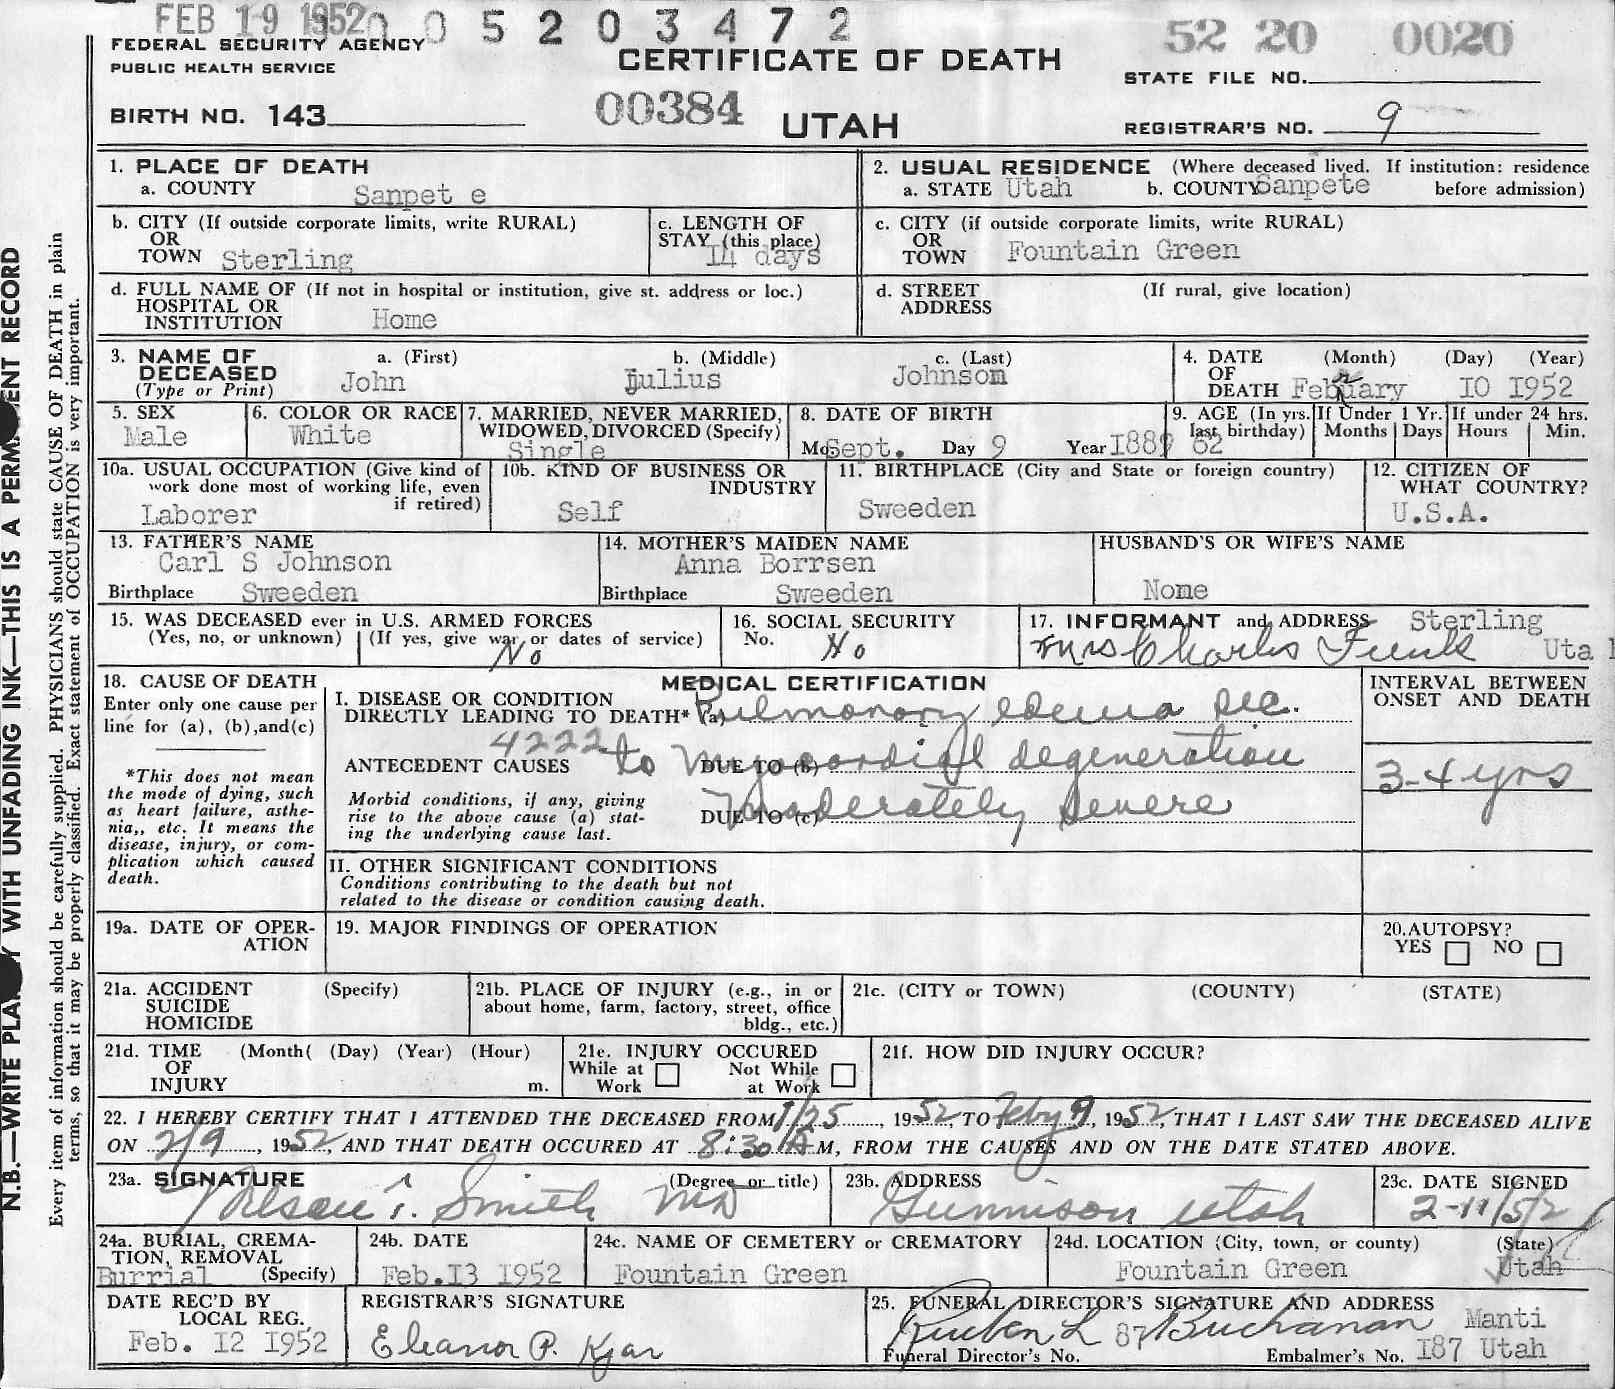 FEB 19 1952 0 0 5 2 0 3 4 7 2
52 20 0020
FEDERAL SECURITY AGENCY
PUBLIC HEALTH SERVICE
CERTIFICATE OF DEATH
STATE FILE NO.
BIRTH NO. 143
00384
UTAH
REGISTRAR'S NO. 9
N.B.—WRITE PLA Y WITH UNFADING INK—THIS IS A PERM ENT RECORD
Every item of information should be carefully supplied. PHYSICIANS should state CAUSE OF DEATH in plain
terms, so that it may be properly classified. Exact statement of OCCUPATION is very important.
1. PLACE OF DEATH
a. COUNTY Sanpet e
2. USUAL RESIDENCE (Where deceased lived. If institution: residence
a. STATE Utah b. COUNTY Sanpete before admission)
b. CITY (If outside corporate limits, write RURAL)
OR
TOWN Sterling
c. LENGTH OF
STAY (this place)
14 days
c. CITY (if outside corporate limits, write RURAL)
OR
TOWN Fountain Green
d. FULL NAME OF (If not in hospital or institution, give st. address or loc.)
HOSPITAL OR
INSTITUTION Home
d. STREET (If rural, give location)
ADDRESS
3. NAME OF a. (First) b. (Middle) c. (Last)
DECEASED
(Type or Print) John Julius Johnson
4. DATE (Month) (Day) (Year)
OF
DEATH Febuary r I0 I952
5. SEX
Male
6. COLOR OR RACE
White
7. MARRIED, NEVER MARRIED,
WIDOWED, DIVORCED (Specify)
Single
8. DATE OF BIRTH
Mo Sept. Day 9 Year I889
9. AGE (In yrs.
last birthday)
62
If Under 1 Yr.
Months Days
If under 24 hrs.
Hours Min.
10a. USUAL OCCUPATION (Give kind of
work done most of working life, even
if retired)
Laborer
10b. KIND OF BUSINESS OR
INDUSTRY
Self
11. BIRTHPLACE (City and State or foreign country)
Sweeden
12. CITIZEN OF
WHAT COUNTRY?
U.S.A.
13. FATHER'S NAME
Carl S Johnson
Birthplace Sweeden
14. MOTHER'S MAIDEN NAME
Anna Borrsen
Birthplace Sweeden
HUSBAND'S OR WIFE'S NAME
None
15. WAS DECEASED ever in U.S. ARMED FORCES
(Yes, no, or unknown) (If yes, give war or dates of service)
No
16. SOCIAL SECURITY
No. No
17. INFORMANT and ADDRESS Sterling
Mrs Charles Funk Uta
18. CAUSE OF DEATH
Enter only one cause per
line for (a), (b), and (c)
*This does not mean
the mode of dying, such
as heart failure, asthe-
nia,, etc. It means the
disease, injury, or com-
plication which caused
death.
MEDICAL CERTIFICATION
I. DISEASE OR CONDITION
DIRECTLY LEADING TO DEATH* (a) Pulmonary edema sec.
4222
ANTECEDENT CAUSES to DUE TO (b) myocardial degeneration
Morbid conditions, if any, giving
rise to the above cause (a) stat-
ing the underlying cause last.
DUE TO (c) Moderately severe
INTERVAL BETWEEN
ONSET AND DEATH
3-4 yrs
II. OTHER SIGNIFICANT CONDITIONS
Conditions contributing to the death but not
related to the disease or condition causing death.
19a. DATE OF OPER-
ATION
19. MAJOR FINDINGS OF OPERATION
20. AUTOPSY?
YES NO
21a. ACCIDENT (Specify)
SUICIDE
HOMICIDE
21b. PLACE OF INJURY (e.g., in or
about home, farm, factory, street, office
bldg., etc.)
21c. (CITY or TOWN) (COUNTY) (STATE)
21d. TIME (Month( (Day) (Year) (Hour)
OF
INJURY m.
21e. INJURY OCCURED
While at Not While
Work at Work
21f. HOW DID INJURY OCCUR?
22. I HEREBY CERTIFY THAT I ATTENDED THE DECEASED FROM 1/25, 1952, TO Feby 9, 1952, THAT I LAST SAW THE DECEASED ALIVE
ON 2/9, 1952, AND THAT DEATH OCCURED AT 8:30 A M, FROM THE CAUSES AND ON THE DATE STATED ABOVE.
23a. SIGNATURE (Degree or title)
Smith MD
23b. ADDRESS
Gunnison Utah
23c. DATE SIGNED
2-11/52
24a. BURIAL, CREMA-
TION, REMOVAL
Burrial (Specify)
24b. DATE
Feb.I3 I952
24c. NAME OF CEMETERY or CREMATORY
Fountain Green
24d. LOCATION (City, town, or county) (State)
Fountain Green Utah
DATE REC'D BY
LOCAL REG.
Feb. I2 I952
REGISTRAR'S SIGNATURE
Eleanor P. Kjar
25. FUNERAL DIRECTOR'S SIGNATURE AND ADDRESS Manti
Rueben L 87 Buchanan
Funeral Director's No. Embalmer's No. I87 Utah